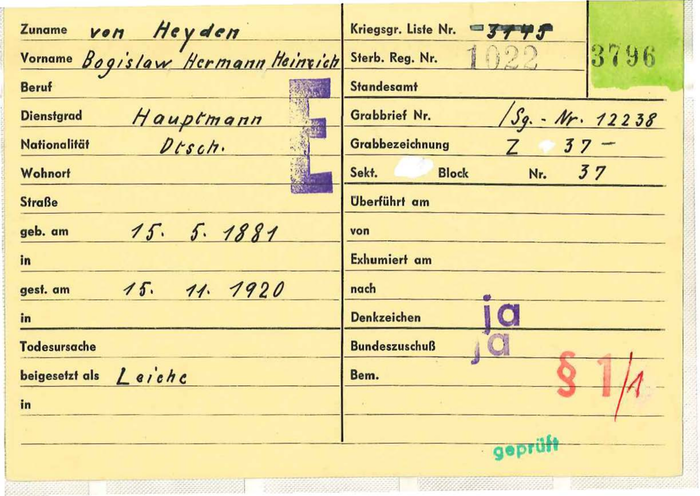 Zuname von Heyden
Vorname Bogislaw Hermann Heinrich
Beruf
Dienstgrad Hauptmann
Nationalität Dtsch.
Wohnort
Straße
geb. am 15. 5. 1881
in
gest. am 15. 11. 1920
in
Todesursache
beigesetzt als Leiche
in
E
Kriegsgr. Liste Nr. 3145
Sterb. Reg. Nr. 1022
3796
Standesamt
Grabbrief Nr. /Sg. - Nr. 12238
Grabbezeichnung Z 37 -
Sekt. Block Nr. 37
Überführt am
von
Exhumiert am
nach
Denkzeichen ja
Bundeszuschuß ja
Bem. § 1/1
geprüft